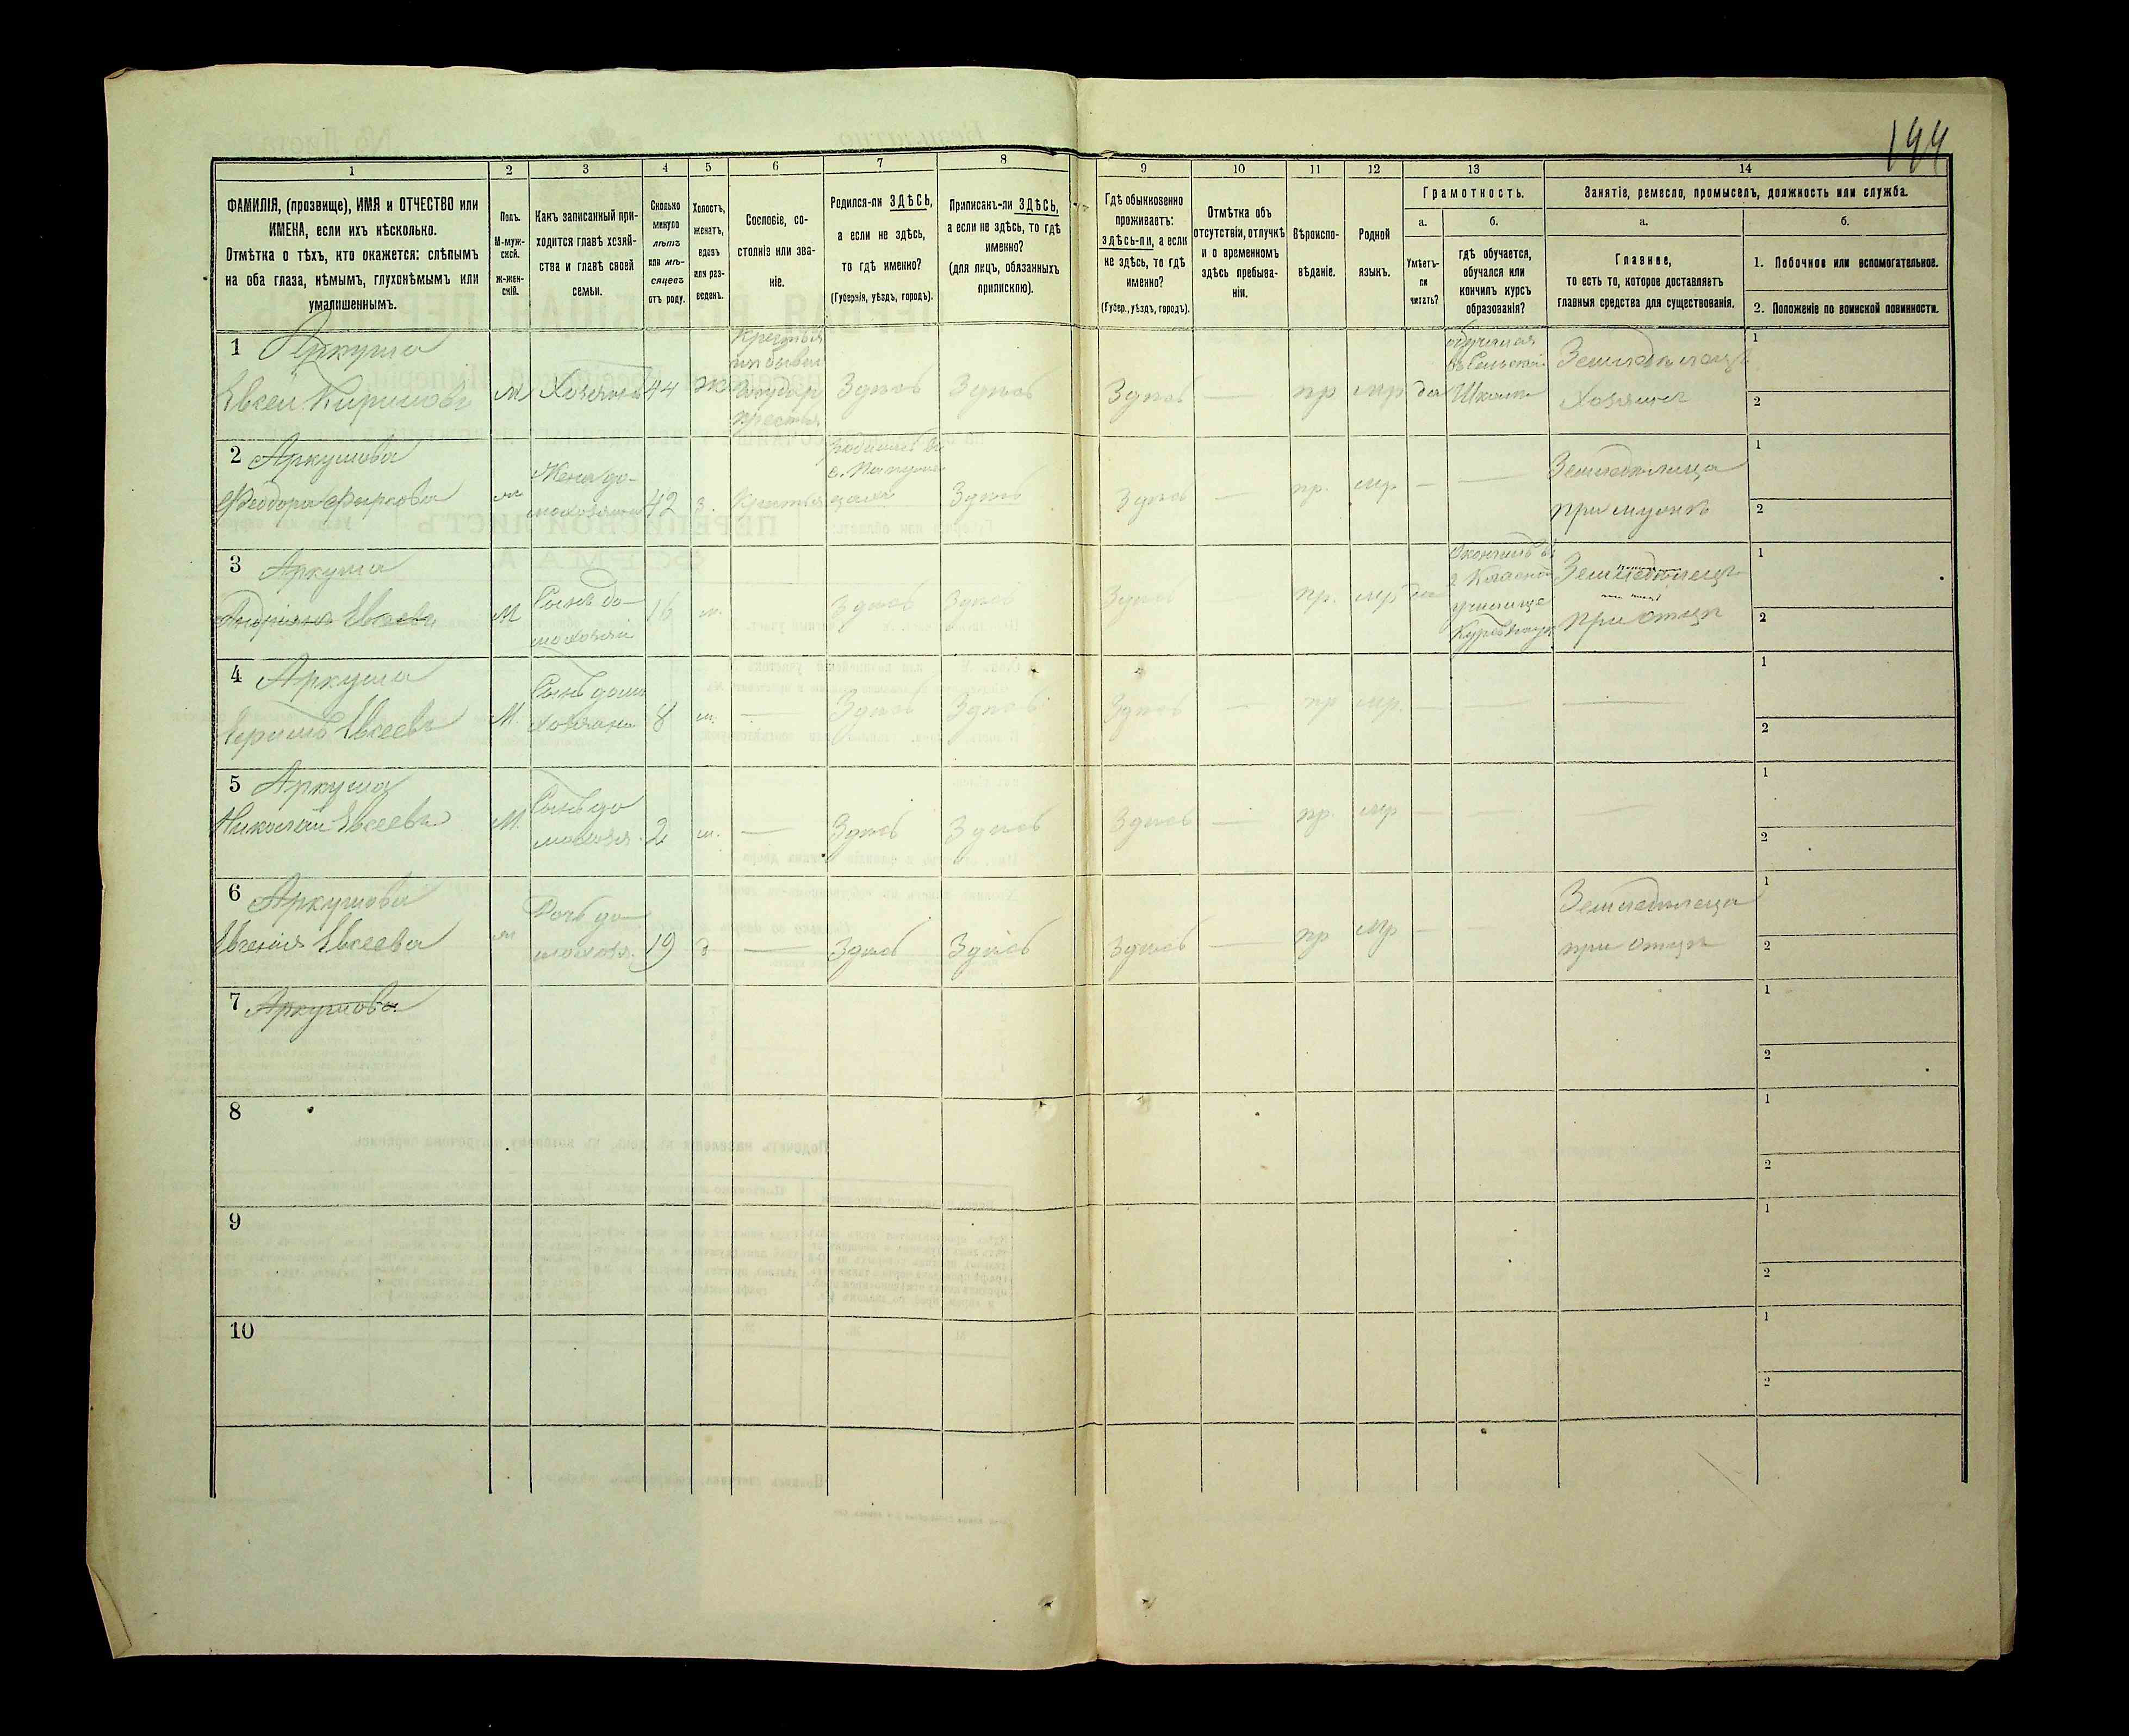 144
1
2
3
4
5
6
7
8
9
10
11
12
13
14
ФАМИЛІЯ, (прозвище), ИМЯ и ОТЧЕСТВО или
ИМЕНА, если ихъ нѣсколько.
Отмѣтка о тѣхъ, кто окажется: слѣпымъ
на оба глаза, нѣмымъ, глухонѣмымъ или
умалишеннымъ.
Полъ.
М-муж-
ской.
ж-жен-
скій.
Какъ записанный при-
ходится главѣ хозяй-
ства и главѣ своей
семьи.
Сколько
минуло
лѣтъ
или мѣ-
сяцевъ
отъ роду.
Холостъ,
женатъ,
вдовъ
или раз-
веденъ.
Сословіе, со-
стояніе или зва-
ніе.
Родился-ли ЗДѢСЬ,
а если не здѣсь,
то гдѣ именно?
(Губернія, уѣздъ, городъ).
Приписанъ-ли ЗДѢСЬ,
а если не здѣсь, то гдѣ
именно?
(для лицъ, обязанныхъ
припискою).
Гдѣ обыкновенно
проживаетъ:
здѣсь-ли, а если
не здѣсь, то гдѣ
именно?
(Губер., уѣздъ, городъ).
Отмѣтка объ
отсутствіи, отлучкѣ
и о временномъ
здѣсь пребыва-
ніи.
Вѣроиспо-
вѣданіе.
Родной
языкъ.
Грамотность.
а.
б.
Умѣетъ-
ли
читать?
гдѣ обучается,
обучался или
кончилъ курсъ
образованія?
Занятіе, ремесло, промыселъ, должность или служба.
а.
б.
Главное,
то есть то, которое доставляетъ
главныя средства для существованія.
1. Побочное или вспомогательное.
2. Положеніе по воинской повинности.
1 Аркуша
Евсей Кириловъ
М Хозяинъ 44 ж
Здѣсь Здѣсь Здѣсь — пр мр да Школѣ
Хозяинъ
1
2
2 Аркушова
Феодора
Жена до-
мохозяина 42 з.
Здѣсь Здѣсь — пр. мр — —
Земледѣлица
при мужѣ
1
2
3 Аркуша
Евсеевъ
М Сынъ до-
мохозяи 16
Здѣсь Здѣсь Здѣсь — пр. мр да
училище
Земледѣлецъ
при отцѣ
1
2
4 Аркуша
Евсеевъ
М Сынъ домо
хозяина 8 —
Здѣсь Здѣсь Здѣсь — пр мр. — — —
1
2
5 Аркуша
Николай Евсеевъ
М. Сынъ до
мохозя. 2 —
Здѣсь Здѣсь Здѣсь — пр. мр — — —
1
2
6 Аркушова
Евгенія Евсеева
Дочь до-
мохозя. 19 —
Здѣсь Здѣсь Здѣсь — пр мр — —
Земледѣлица
при отцѣ
1
2
7 Аркушова
1
2
8
1
2
9
1
2
10
1
2